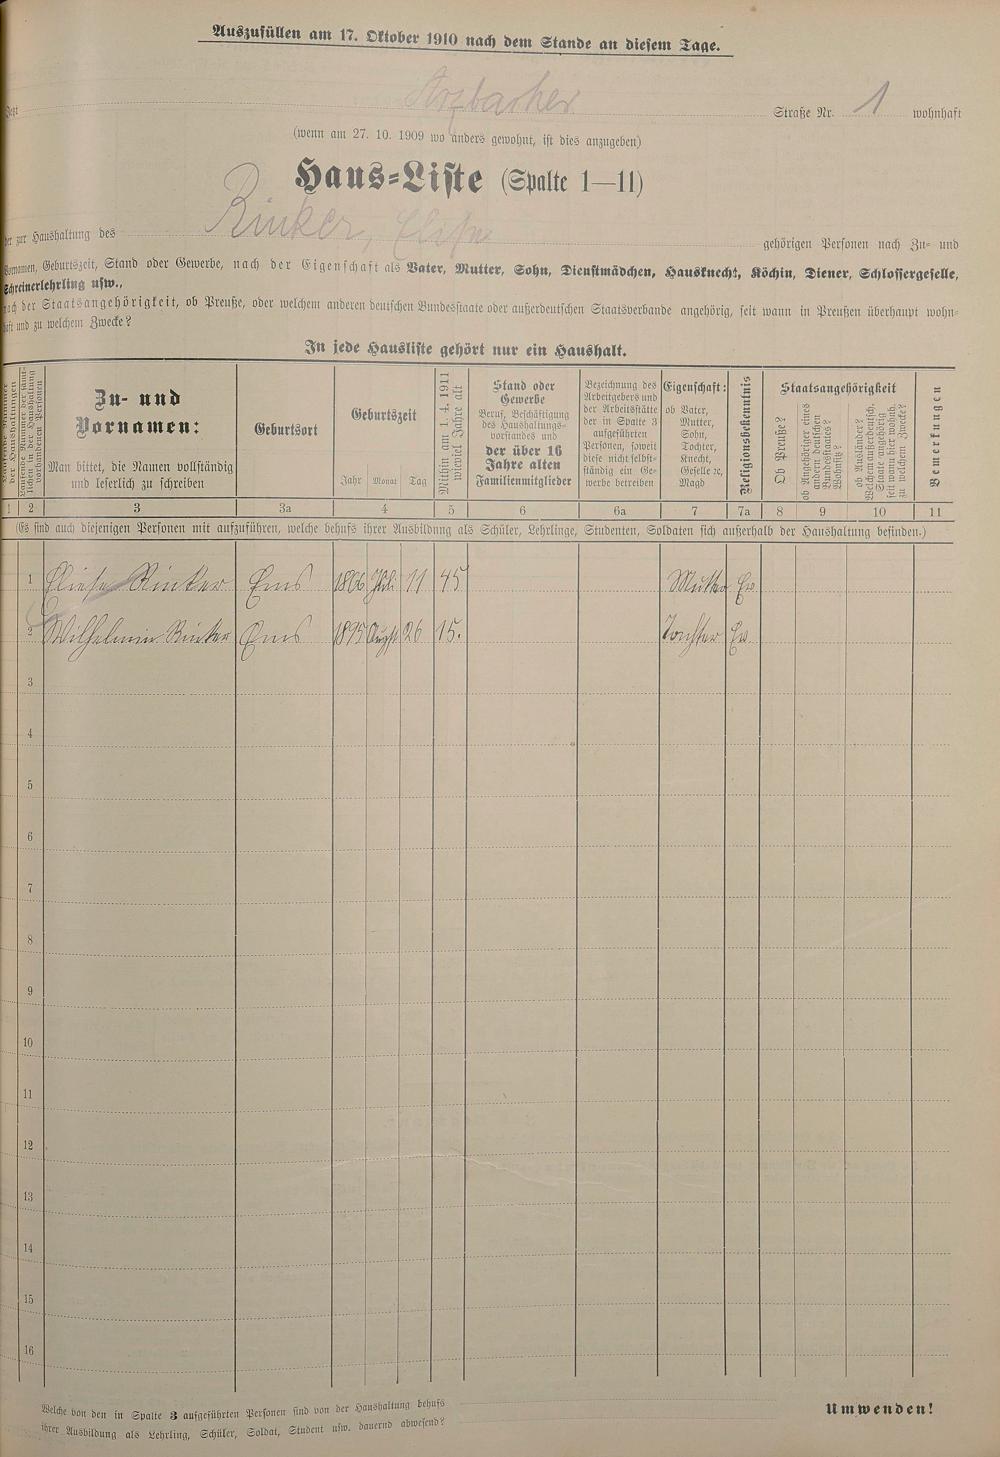 Auszufüllen am 17. Oktober 1910 nach dem Stande an diesem Tage.
Arzbacher Straße Nr. 1 wohnhaft
(wenn am 27. 10. 1909 wo anders gewohnt, ist dies anzugeben)
Haus=Liste (Spalte 1—11)
der zur Haushaltung des Rinker, Elise gehörigen Personen nach Zu- und
Vornamen, Geburtszeit, Stand oder Gewerbe, nach der Eigenschaft als Vater, Mutter, Sohn, Dienstmädchen, Hausknecht, Köchin, Diener, Schlossergeselle,
Schreinerlehrling usw.,
nach der Staatsangehörigkeit, ob Preuße, oder welchem anderen deutschen Bundesstaate oder außerdeutschen Staatsverbande angehörig, seit wann in Preußen überhaupt wohn=
haft und zu welchem Zwecke?
In jede Hausliste gehört nur ein Haushalt.
der Haushaltungen
Laufende Nummer der sämt-
lichen in der Haushaltung
vorhandenen Personen
Zu- und
Vornamen:
Man bittet, die Namen vollständig
und leserlich zu schreiben
Geburtsort
Geburtszeit
Jahr Monat Tag
Mithin am 1. 4. 1911
wieviel Jahre alt
Stand oder
Gewerbe
Beruf, Beschäftigung
des Haushaltungs-
vorstandes und
der über 16
Jahre alten
Familienmitglieder
Bezeichnung des
Arbeitgebers und
der Arbeitsstätte
der in Spalte 3
aufgeführten
Personen, soweit
diese nicht selbst-
ständig ein Ge-
werbe betreiben
Eigenschaft:
ob Vater,
Mutter,
Sohn,
Tochter,
Knecht,
Geselle ec,
Magd
Religionsbekenntnis
Staatsangehörigkeit
Ob Preuße?
ob Angehöriger eines
andern deutschen
Bundesstaates?
Wohnsitz?
ob Ausländer?
Welchem außerdeutsch.
Staate angehörig
seit wann hier wohnh.
zu welchem Zwecke?
Bemerkungen
1 2 3 3a 4 5 6 6a 7 7a 8 9 10 11
(Es sind auch diejenigen Personen mit aufzuführen, welche behufs ihrer Ausbildung als Schüler, Lehrlinge, Studenten, Soldaten sich außerhalb der Haushaltung befinden.)
1 Eliese Rinker Ems 1866 Juli 11 45 Mutter Ev.
2 Wilhelmin Rinker Ems 1895 August 26 15. Tochter Ev.
3
4
5
6
7
8
9
10
11
12
13
14
15
16
Welche von den in Spalte 3 aufgeführten Personen sind von der Haushaltung behufs
ihrer Ausbildung als Lehrling, Schüler, Soldat, Student usw. dauernd abwesend?
Umwenden!